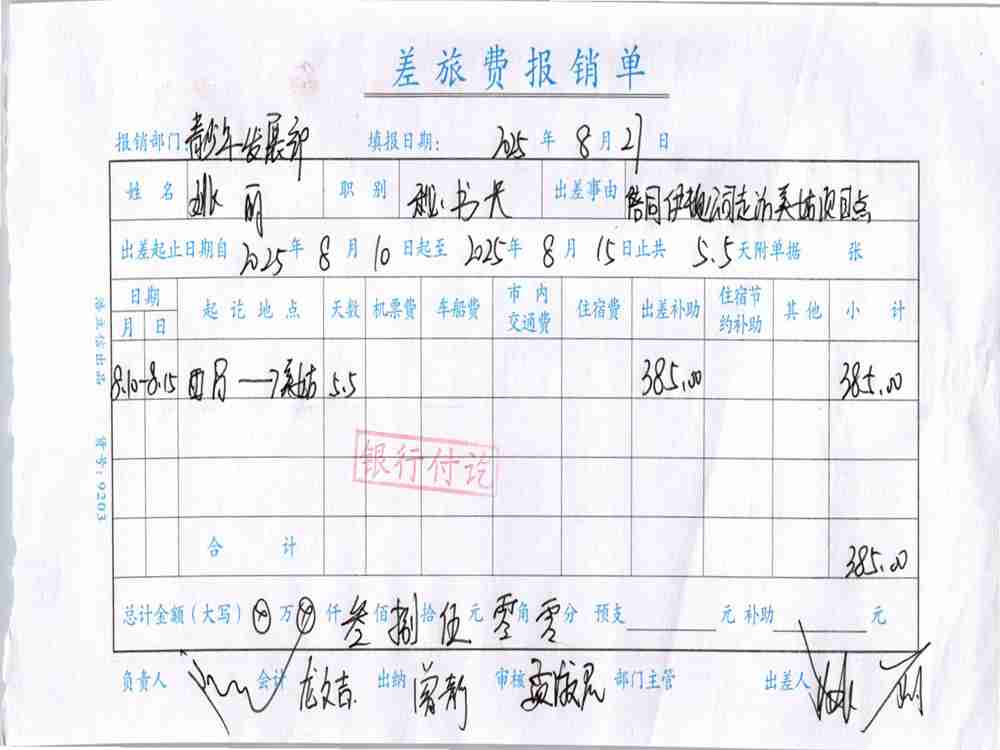 差旅费报销单
报销部门: 青少年发展部 填报日期: 2025 年 8 月 27 日
姓名 姚丽 职别 副秘书长 出差事由 陪同伊顿公司走访美姑项目点
出差起止日期自 2025 年 8 月 10 日起至 2025 年 8 月 15 日止共 5.5 天附单据 张
日期 起讫地点 天数 机票费 车船费 市内交通费 住宿费 出差补助 住宿节约补助 其他 小计
月 日
8.10-8.15 西昌—美姑 5.5 385.00 385.00
银行付讫
合计 385.00
总计金额(大写) ⊗ 万 ⊗ 仟 叁 佰 捌 拾 伍 元 零 角 零 分 预支 元 补助 元
负责人 会计 龙文吉 出纳 曾新 审核 部门主管 出差人 姚丽
浩立信出品 货号:9203